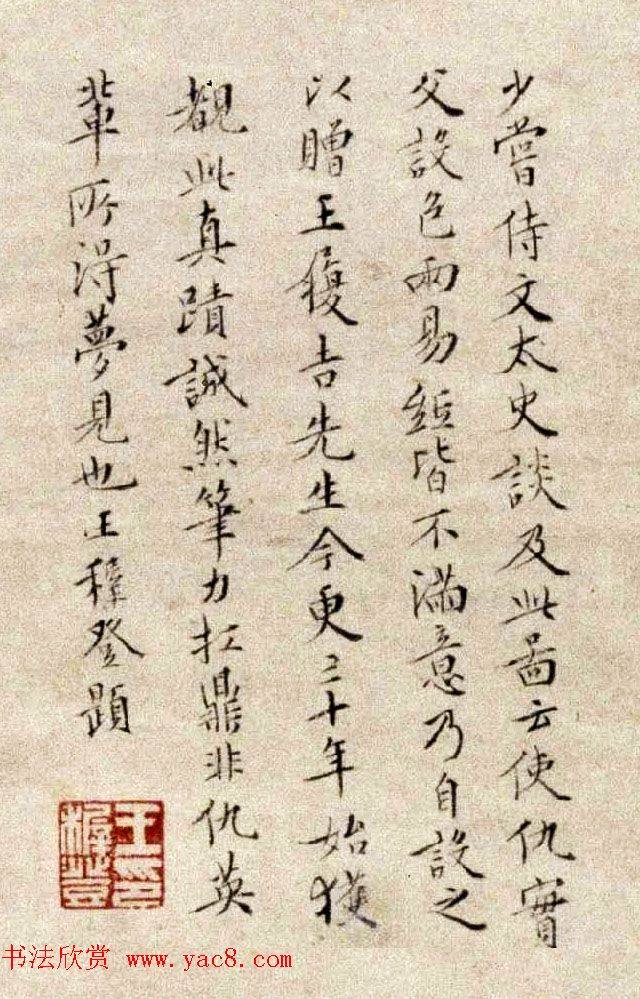 少嘗侍文太史談及此圖云使仇實
父設色兩易紙皆不滿意乃自設之
以贈王履吉先生今更三十年始獲
覩此真蹟誠然筆力扛鼎非仇英
輩所得夢見也王穉登題
王印穉登
书法欣赏 www.yac8.com